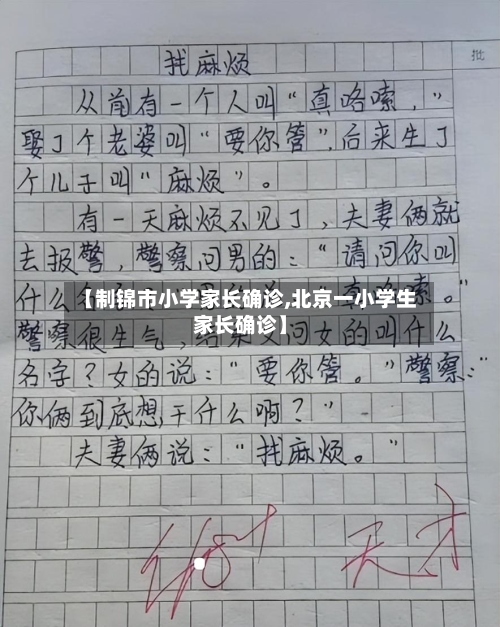 找麻烦
批
从前有一个人叫“真啰嗦，”
娶了个老婆叫“要你管”，后来生了
个儿子叫“麻烦”。
有一天麻烦不见了，夫妻俩就
去报警，警察问男的：“请问你叫
什么
【制锦市小学家长确诊,北京一小学生
家长确诊】
警察很生气，
又问女的叫什么
名字？女的说：“要你管。”警察：“
你俩到底想干什么啊？”
夫妻俩说：“找麻烦。”
天才